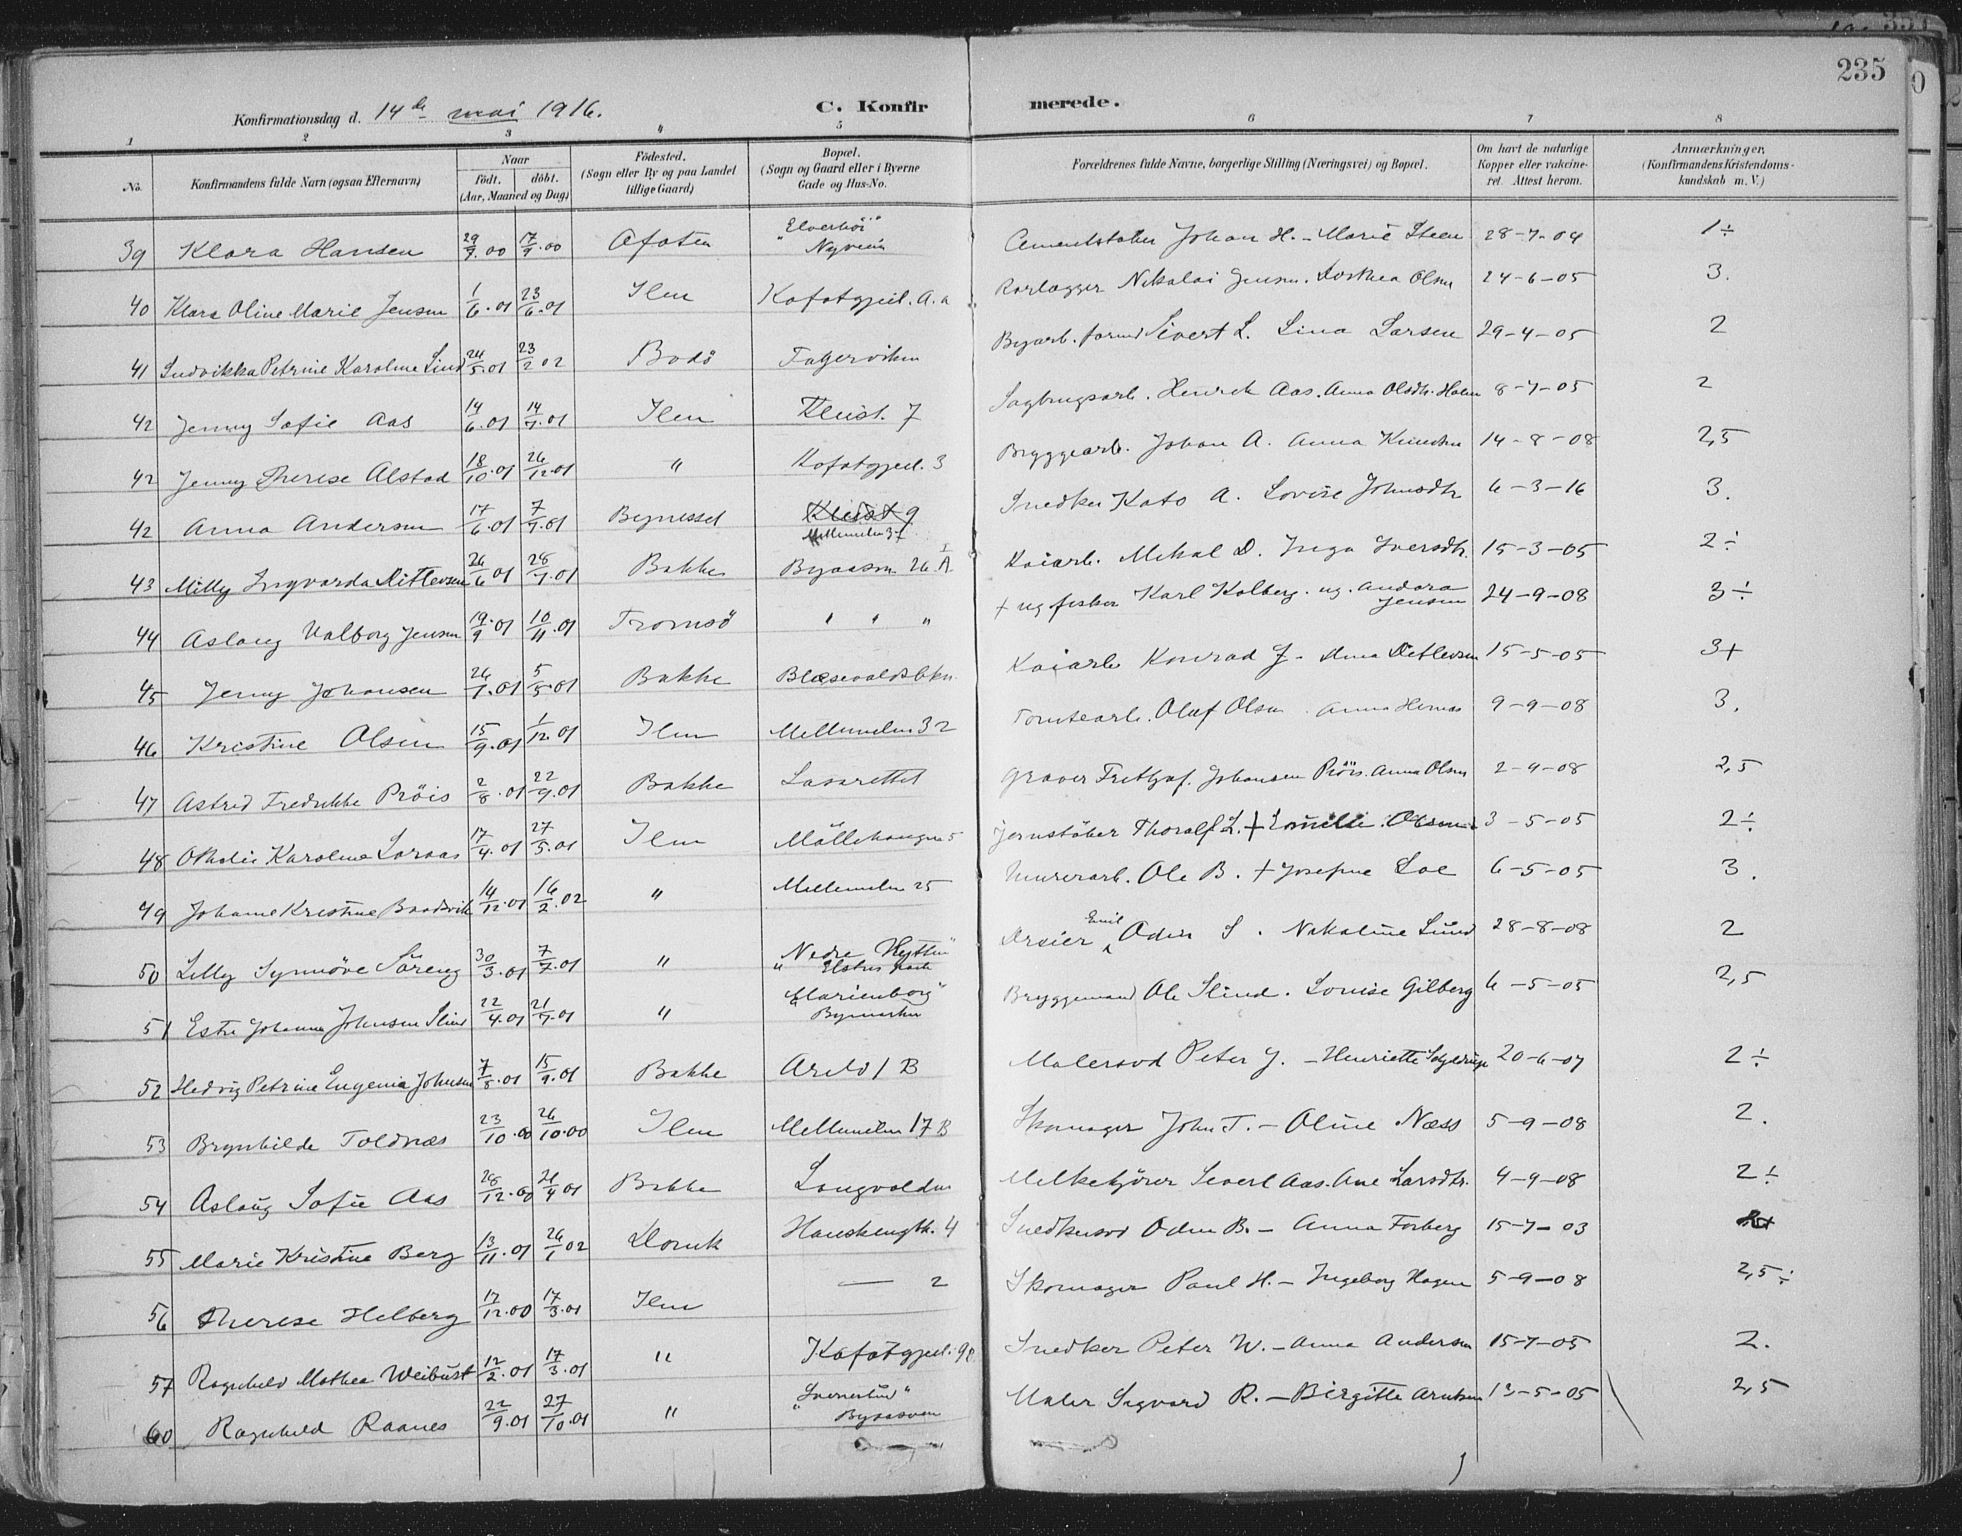 235
Konfirmationsdag d. 14de mai 1916. C. Konfirmerede.
1 2 3 " 5 6 7 8
No. Konfirmandens fulde Navn (ogsaa Efternavn) Naar født. døbt. (Aar, Maaned og Dag) Fødested. (Sogn eller By og paa Landet tillige Gaard) Bopæl. (Sogn og Gaard eller i Byerne Gade og Hus-No. Forældrenes fulde Navne, borgerlige Stilling (Næringsvei) og Bopæl. Om havt de naturlige Kopper eller vakcineret. Attest herom. Anmærkninger. (Konfirmandens Kristendomskundskab m. V.)
39 Klara Hansen 29/7.00 17/9.00 Afoten "Elverhöi" Nyveien Johan H. - Marie Steen 28-7-04 1÷
40 Klara Oline Marie Jensen 1/6.01 23/6.01 Ilen A.a Rørlægger Nikolai Jensen. Dorthea Olsen 24-6-05 3.
41 Ludvikka Petrine Karoline Lind 24/5.01 23/2 02 Bodö Fagerviken Byarb. formd Sivert L. Lina Larsen 29-4-05 2
42 Jenny Sofie Aas 14/6.01 14/7.01 Ilen 7 Sagbrugsarb. Henrik Aas. Anna Olsdtr. Holm 8-7-05 2
42 Jenny Therese Alstad 18/10.01 26/12.01 " 3 Bryggearb. Johan A. Anna Knudsen 14-8-08 2,5
42 Anna Andersen 17/6.01 7/7.01 Bynesset 9 Mellemilen 37 Snedker Kato A. Lovise Johnsdtr 6-3-16 3.
43 Milly Ingvarda Ditlevsen 26/6 01 28/7.01 Bakke Byaasen 26 A Kaiarb. Mikal D. Inga Iversdtr. 15-3-05 2÷
44 Aslaug Valborg Jensen 19/9.01 10/11.01 Tromsö " " " + ug fisker Karl Kolberg. ug. Andora Jensen 24-9-08 3÷
45 Jenny Johansen 26/1.01 5/5.01 Bakke Blæsevoldsbkn. Kaiarb Konrad J- Anna Detlevsen 15-5-05 3+
46 Kristine Olsen 15/9.01 1/12 01 Ilen Mellemilen 32 Tomtearb. Olaf Olsen. Anna 9-9-08 3.
47 Astrid Fredrikke Pröis 2/8.01 22/9.01 Bakke Lasarettet Graver Frithjof Johansen Pröis. Anna Olsen 2-9-08 2,5
48 Othelie Karoline 17/4.01 27/5.01 Ilen Möllebaugen 5 Jernstöber Thoralf L. + Emilie Olsen 3-5-05 2÷
49 Johanne Kristine Baadsvik 14/12.01 16/2.02 " Mellemilen 25 Murerarb. Ole B. + Josefine Loe 6-5-05 3.
50 Lilly Synnöve Söreng 30/3.01 7/7.01 " "Nedre Hytten" Elsters park Drosier Emil Odin S. Nikoline Lund 28-8-08 2
51 Johanna Johnsen Slind 22/4.01 21/7.01 " "Marienborg" Bymarken Bryggemand Ole Slind. Louise Gilberg 6-5-05 2,5
52 Hedvig Petrine Eugenia Johnsen 7/8.01 15/9.01 Bakke Arild 1 B Malersvd Peter J. - Henriette 20-6-07 2÷
53 Brynhilde Toldnæs 23/10.00 26/10.00 Ilen Mellemilen 17 B Skomager John T. - Oline Næss 5-9-08 2.
54 Aslaug Sofie Aas 28/12.00 21/4 01 Bakke Langvolden Melkekjörer Sivert Aas. Ane Larsdtr. 4-9-08 2÷
55 Marie Kristine Berg 13/11.01 26/1 02 Domk Hanskemgtn. 4 Snedkersvd Odin B. - Anna Forberg 15-7-03
56 Therese Helberg 17/12.00 17/3.01 Ilen — 2 Skomager Paul H. - Ingeborg Hagen 5-9-08 2,5÷
57 Ragnhild Mathea Weibust 12/2.01 17/3.01 " Snedker Peter W. - Anna Andersen 15-7-05 2.
60 Ragnhild Raanes 22/9.01 27/10.01 " Byaasveien Maler Sigvard R. - Birgitte Arntsen 13-5-05 2,5